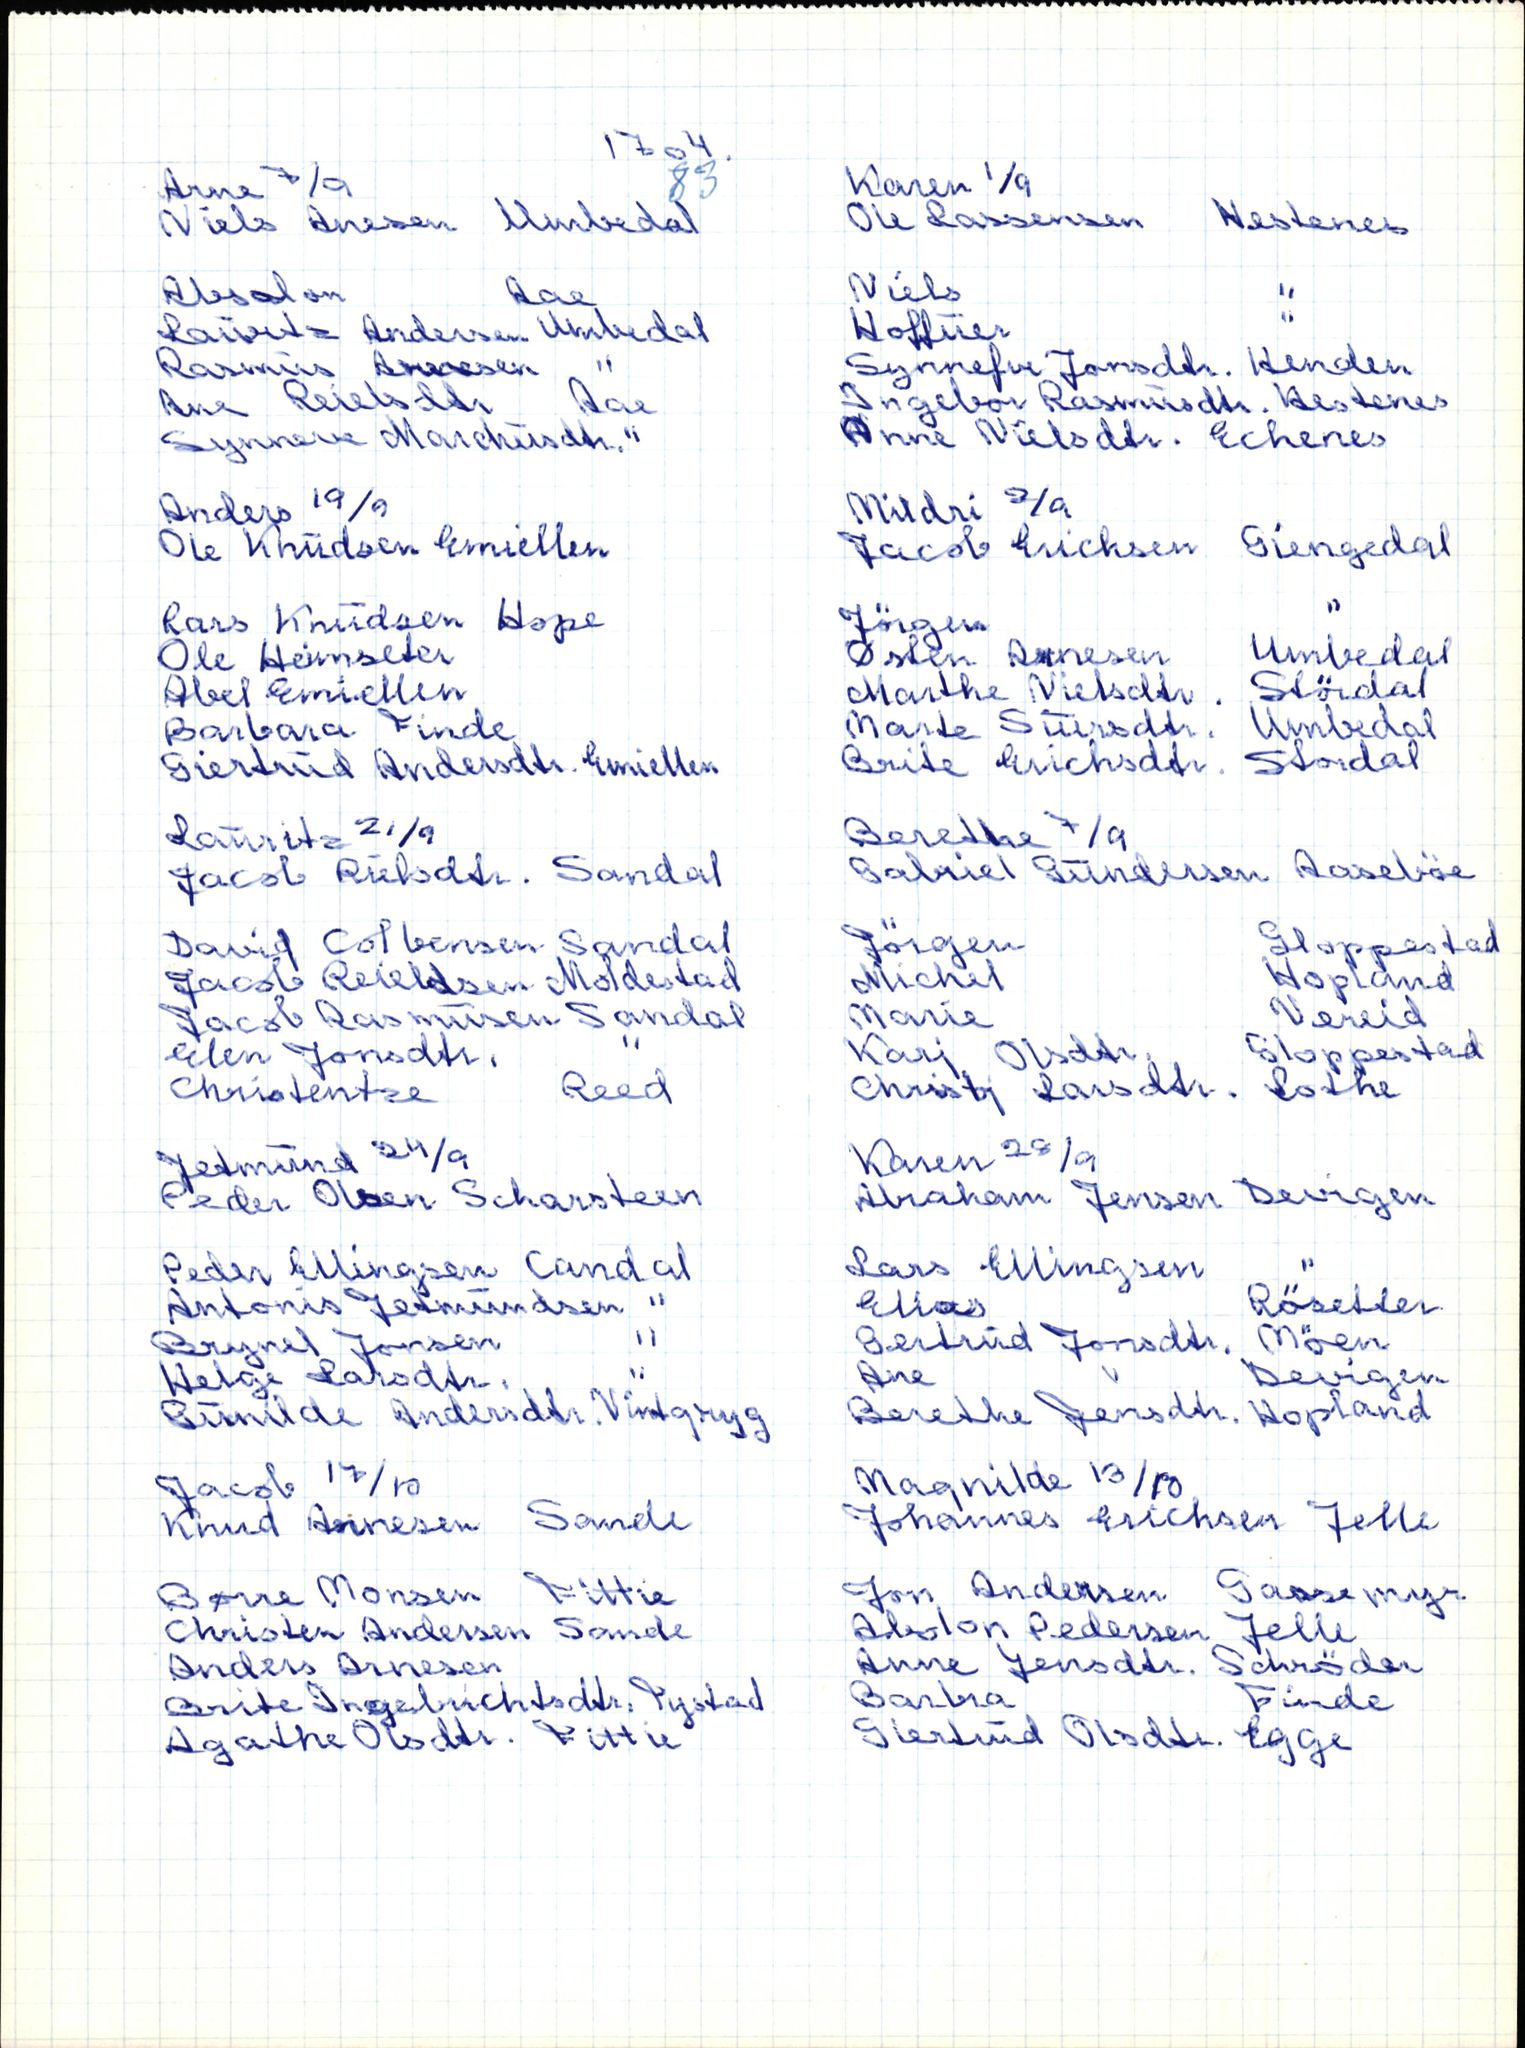 1704.
83
Arne 7/9
Niels Anesen Umbedal
Absolon Aae
Lauritz Andersen Umbedal
Rasmus Arnesen "
Ane Reielsdtr Aae
Synneve Marchusdtr. "
Anders 19/9
Ole Knudsen Emiellen
Lars Knudsen Hope
Ole Heimseter
Abel Emiellen
Barbara Finde
Giertrud Andersdtr. Emiellen
Lauritz 21/9
Jacob Rielsdtr. Sandal
David Colbensen Sandal
Jacob Reieldsen Moldestad
Jacob Rasmusen Sandal
Elen Jonsdtr. "
Christentze Reed
Jetmund 24/9
Peder Olsen Scharsteen
Peder Ellingsen Candal
Antonis Jetmundsen "
Brynel Jonsen "
Helge Larsdtr. "
Gunilde Andersdtr. Vintgryg
Jacob 17/10
Knud Annesen Sande
Børre Monsen Fittie
Christen Andersen Sande
Anders Arnesen
Brite Ingebrichtsdtr. Tystad
Agathe Olsdtr. Fittie
Karen 1/9
Ole Lassensen Hestenes
Niels "
Hoffuer "
Synnefve Jonsdtr. Henden
Ingebor Rasmusdtr. Hestenes
Anne Nielsdtr. Echenes
Mildri 2/9
Jacob Erichsen Giengedal
Jörgen "
Østen Arnesen Umbedal
Marthe Nielsdtr. Stördal
Marte Siursdtr. Umbedal
Brite Erichsdtr. Stordal
Berethe 7/9
Gabriel Gundersen Aaseböe
Jörgen Gloppestad
Michel Hopland
Marie Vereid
Karj Olsdtr. Gloppestad
Christj Larsdtr. Lothe
Karen 28/9
Abraham Jensen Devigen
Lars Ellingsen "
Elias Rösetter
Gertrud Jonsdtr. Möen
Ane " Devigen
Berethe Jensdtr. Hopland
Magnilde 13/10
Johannes Erichsen Jelle
Jon Andersen Gaasemyr
Absolon Pedersen Jelle
Anne Jensdtr. Schröder
Barbra Finde
Giertrud Olsdtr. Egge